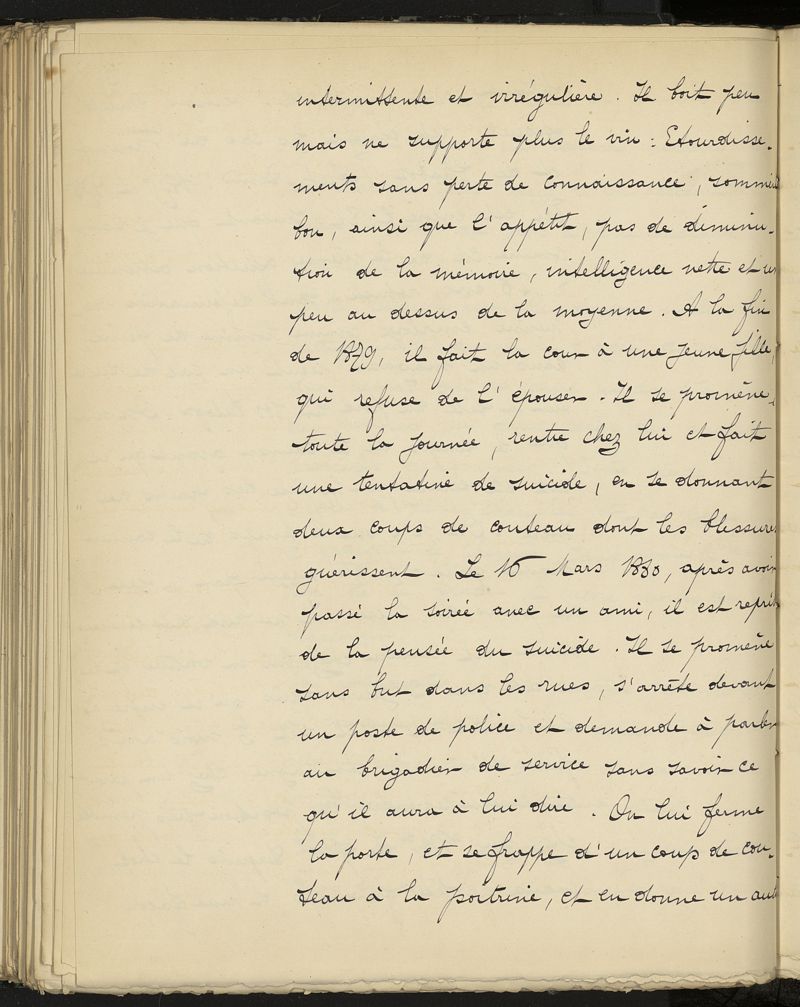 intermittente et irrégulière. Il boit peu
mais ne supporte plus le vin : Etourdisse-
ments sans perte de connaissance, sommeil
bon, ainsi que l'appétit, pas de diminu-
tion de la mémoire, intelligence nette et un
peu au dessus de la moyenne. A la fin
de 1879, il fait la cour à une jeune fille,
qui refuse de l'épouser. Il se promène
toute la journée, rentre chez lui et fait
une tentative de suicide, en se donnant
deux coups de couteau dont les blessures
guérissent. Le 16 Mars 1880, après avoir
passé la soirée avec un ami, il est repris
de la pensée du suicide. Il se promène
sans but dans les rues, s'arrête devant
un poste de police et demande à parler
au brigadier de service sans savoir ce
qu'il aura à lui dire. On lui ferme
la porte, et se frappe d'un coup de cou-
teau à la poitrine, et en donne un